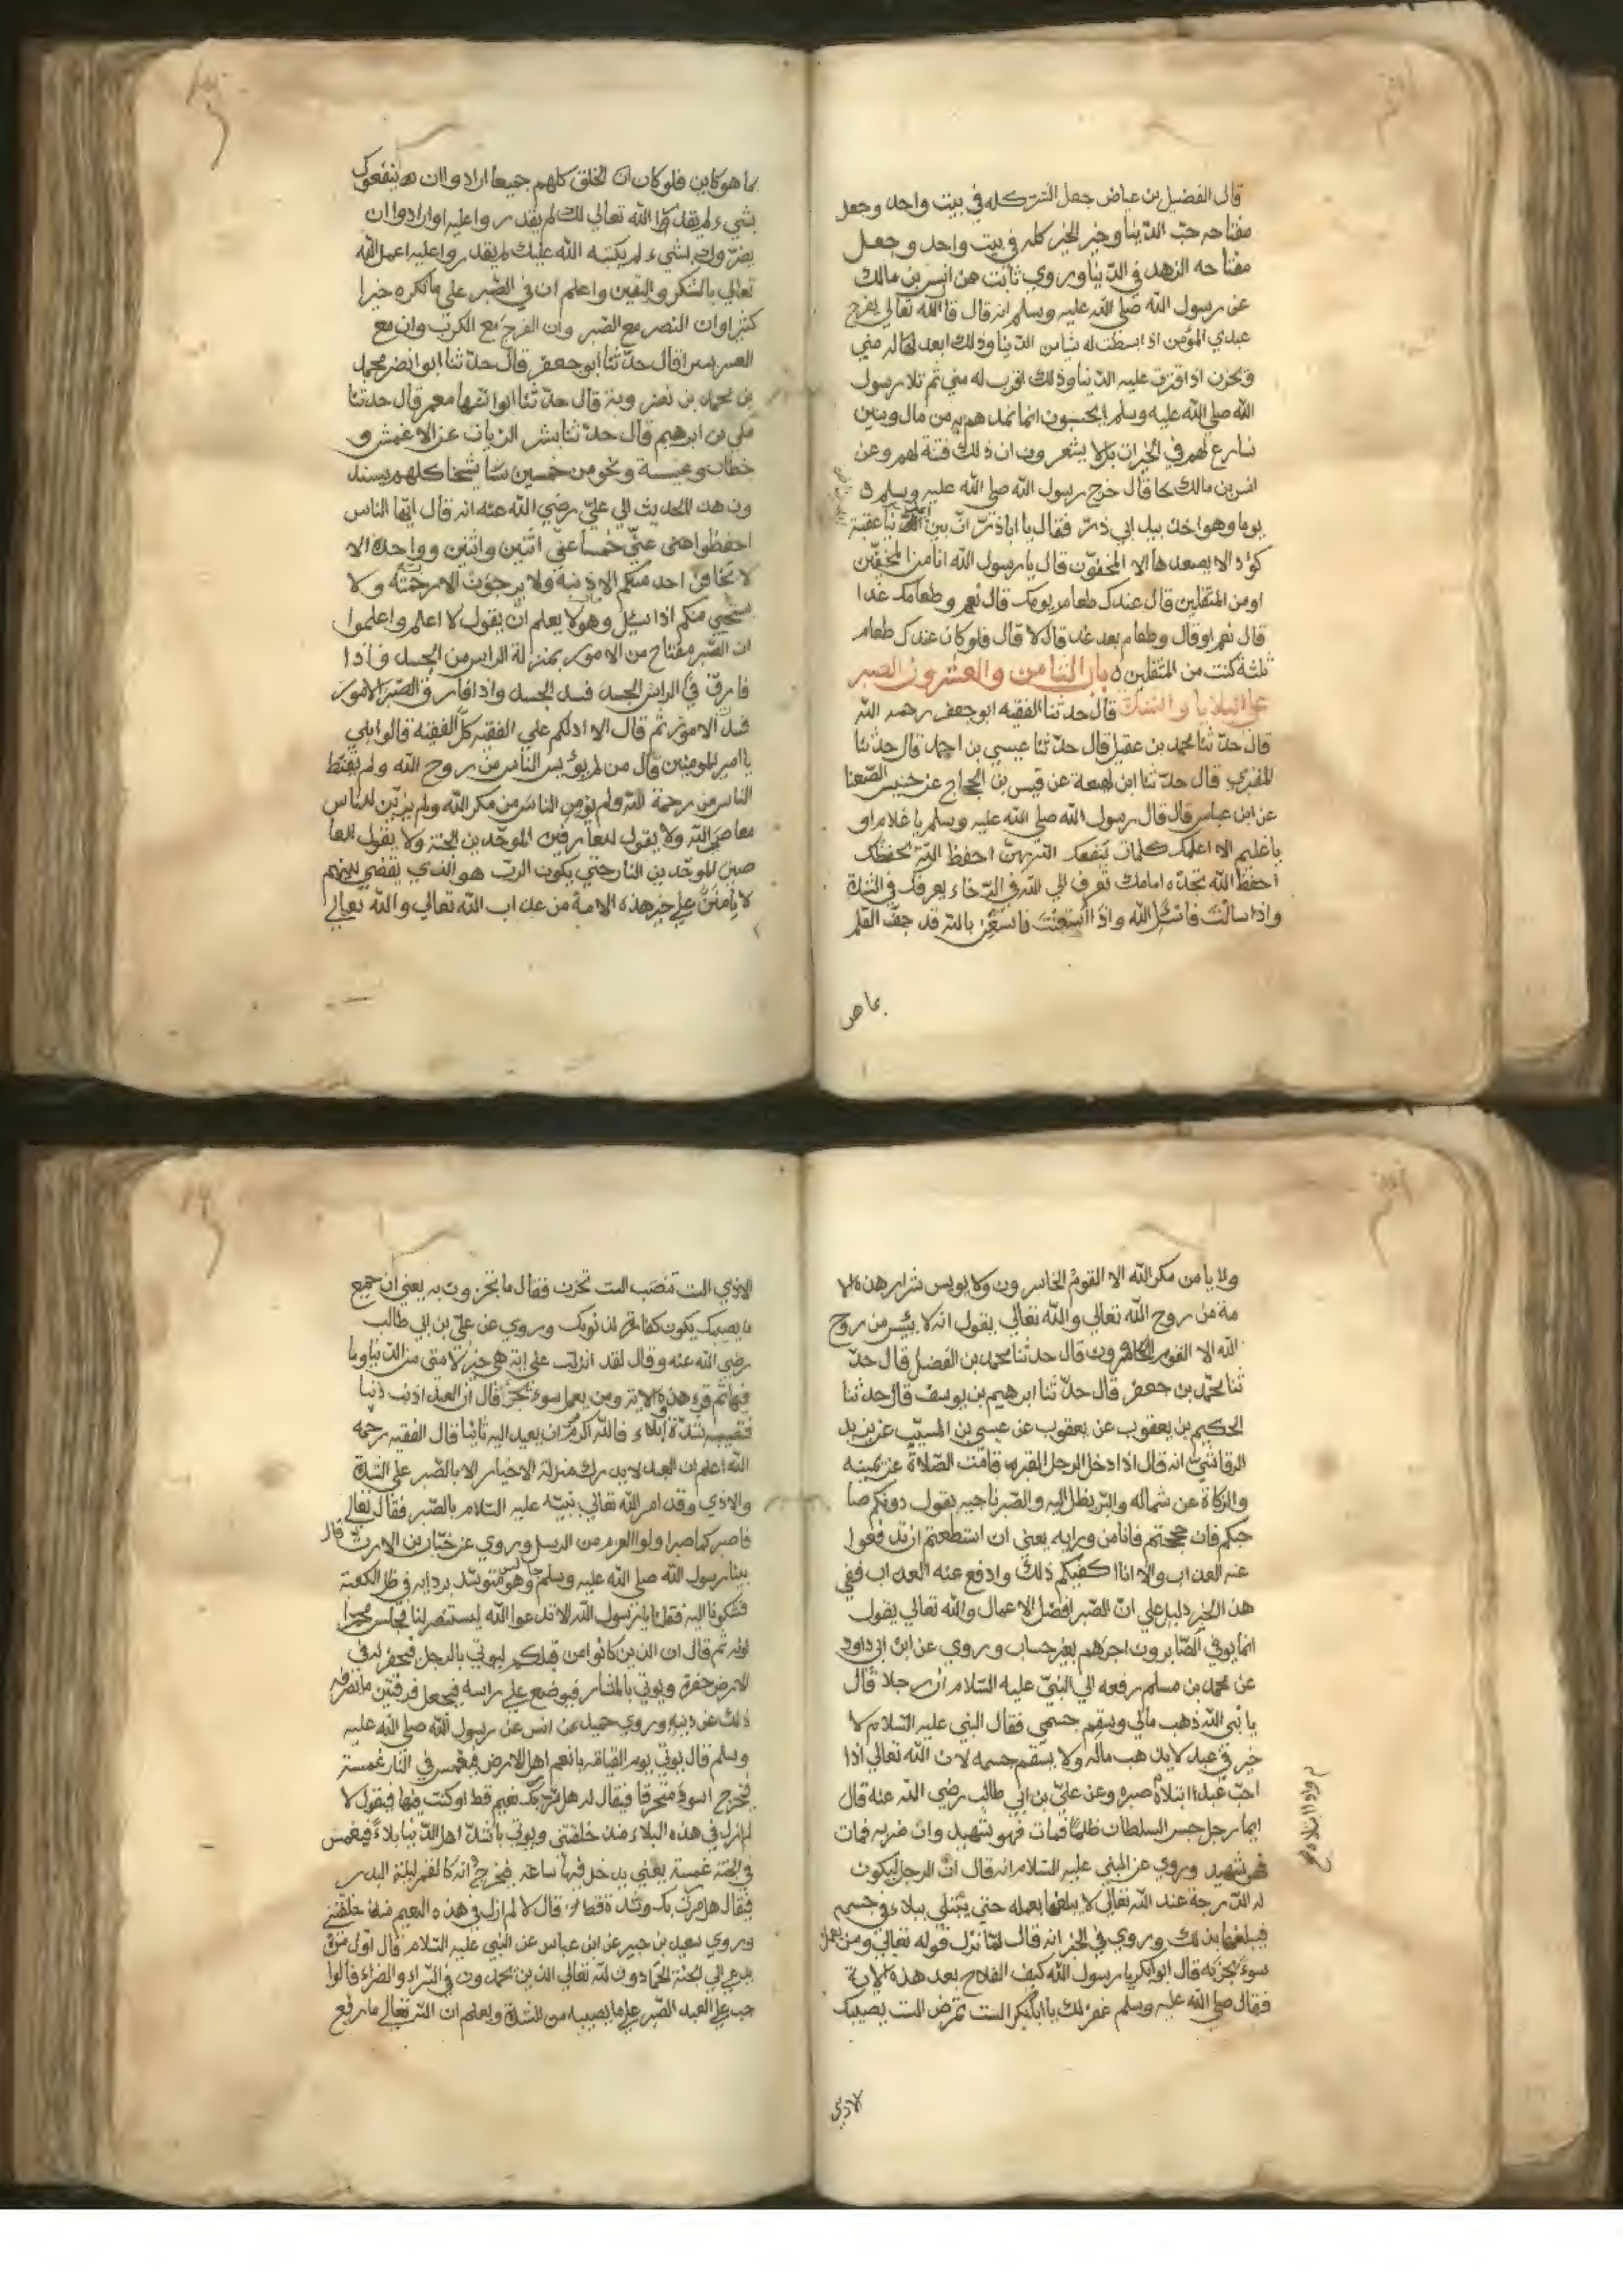 قال الفضيل بن عياض جعل الشر كله في بيت واحد وجعل
مفتاحه حبّ الدّنيا وخير الخير كله في بيت واحد وجعل
مفتاحه الزهد في الدّنيا وروي ثابت عن انس بن مالك
عن رسول الله صلي الله عليه وسلم انه قال قال الله تعالي يفرح
عبدي المؤمن اذا بسطت له شيا من الدّنيا وذلك ابعد له مني
ويحزن اذا قترت عليه الدّنيا وذلك اقرب له مني ثم تلا رسول
الله صلي الله عليه وسلم ايحسبون انما نمدهم به من مال وبنين
نسارع لهم في الخيرات بل لا يشعرون ان ذلك فتنة لهم وعن
انس بن مالك قال خرج رسول الله صلي الله عليه وسلم
يوما وهو اخذ بيد ابي ذرّ فقال يا اباذرّ انّ بين عقبة
كؤد لا يصعدها الا المخفّون قال يا رسول الله انا من المخفّين
او من المثقلين قال عندك طعام يومك قال نعم وطعامك غدا
قال نعم وقال وطعام بعد غد قال لا قال فلو كان عندك طعام
ثلثة كنت من المثقلين باب الثامن والعشرون الصبر
علي البلايا والشدة قال حدثنا الفقيه ابو جعفر رحمه الله
قال حدّثنا محمد بن عقيل قال حدّثنا عيسي بن احمد قال حدّثنا
المقري قال حدّثنا ابن لهيعة عن قيس بن الحجاج عن حنيس الصّنعا
عن ابن عباس قال قال رسول الله صلي الله عليه وسلم يا غلام او
يا غليم الا اعلمك كلمات ينفعك الله بهنّ احفظ الله يحفظك
احفظ الله تجده امامك تعرف الي الله في الرّخاء يعرفك في الشدة
واذا سالت فاسئل الله واذا استعنت فاستعن بالله قد جفّ القلم
بما هو
بما هو كاين فلو كان انّ الخلق كلهم جميعا ارادوا ان ينفعوك
بشيء لم يقدّره الله تعالي لك لم يقدروا عليه او ارادوا ان
يضرّوك بشيء لم يكتبه الله عليك لم يقدروا عليه اعمل لله
تعالي بالشكر واليقين واعلم ان في الصّبر علي ما تكره خيرا
كثيرا وان النصر مع الصبر وان الفرج مع الكرب وان مع
العسر يسرا قال حدّثنا ابو جعفر قال حدّثنا ابو انضر محمد
بن محمد بن نضروية قال حدّثنا ابو اشها معمر قال حدثنا
مكي بن ابرهيم قال حدّثنا بشر الزيات عن الاعمش و
خطاب وعبسة ونحو من خمسين شيخا كلهم يسند
ون هذا الحديث الي عليّ رضي الله عنه انه قال ايّها الناس
احفظوا عنّي خمسا عنّي اثنين واثنين وواحدة الا
لا يخافن احد منكم الا ذنبه ولا يرجون الا رحمته ولا
يستحيي منكم اذا سئل وهو لا يعلم ان يقول لا اعلم واعلموا
ان الصّبر مفتاح من الامور بمنزلة الراس من الجسد فاذا
فارق الراس الجسد فسد الجسد واذا فارق الصّبر الامور
فسد الامور ثم قال الا ادلكم علي الفقيه كلّ الفقيه قالوا بلي
يا امير المومنين قال من لم يوئس الناس من روح الله ولم يقنط
الناس من رحمة الله ولم يؤمن الناس من مكر الله ولم يزيّن للناس
معاصي الله ولا يقول للعارفين الموحّدين الجنة ولا يقول للعا
صين الموحّدين النار حتي يكون الربّ هو الذي يقضي بينهم
لا يأمننّ علي خير هذه الامة من عذاب الله تعالي والله تعالي
ولا يامن مكر الله الا القوم الخاسرون ولا يويس شرار هذه الا
مة من روح الله تعالي والله تعالي يقول انه لا ييئس من روح
الله الا القوم الكافرون قال حدثنا محمد بن الفضل قال حدّ
ثنا محمّد بن جعفر قال حدّثنا ابرهيم بن يوسف قال حدثنا
الحكيم بن يعقوب عن يعقوب عن عيسي بن المسيّب عن يزيد
الرقاشي انه قال اذا دخل الرجل القبر قامت الصّلاة عن يمينه
والزكاة عن شماله والبرّ يظل اليه والصّبر ناحيه يقول دونكم صا
حبكم فان حججتم فانا من ورايه يعني ان استطعتم ان تدفعوا
عنه العذاب والا انا اكفيكم ذلك وادفع عنه العذاب ففي
هذا الخبر دليل علي انّ الصّبر افضل الاعمال والله تعالي يقول
انما يوفي الصّابرون اجرهم بغير حساب وروي عن ابن ابي داود
عن محمد بن مسلم رفعه الي النبيّ عليه السّلام ان رجلا قال
يا نبي الله ذهب مالي وسقم جسمي فقال النبي عليه السّلام لا
خير في عبد لا يذهب ماله ولا يسقم جسمه لان الله تعالي اذا
احبّ عبدا ابتلاه صبره وعن عليّ بن ابي طالب رضي الله عنه قال
ايما رجل حبس السلطان ظلما فمات فهو شهيد وان ضربه فمات
فهو شهيد وروي عن النبي عليه السّلام انه قال انّ الرجل ليكون
له الدّرجة عند الله تعالي لا يبلغها بعمله حتي يبتلي ببلاء في جسمه
فيبلغها بذلك وروي في الخبر انه قال لمّا نزل قوله تعالي ومن يعمل
سوء يجز به قال ابو بكر يا رسول الله كيف الفلاح بعد هذه الاية
فقال صلي الله عليه وسلم غفر لك يا ابابكر الست تمرض الست يصيبك
الاذي
الاذي الست تنصب الست تحزن فقال ما تجزون به يعني ان جميع
ما يصيبك يكون كفارة لذنوبك وروي عن عليّ بن ابي طالب
رضي الله عنه وقال لقد انزلت علي اية هي خير لامتي من الدّنيا وما
فيها ثم قرء هذه الاية ومن يعمل سوء يجز قال ان العبد اذنب ذنبا
فتصيبه شدّة او بلاء فالله اكرم ان يعيد اليه ثانيا قال الفقيه رحمه
الله اعلم ان العبد لا يدرك منزلة الاخيار الا بالصّبر علي الشدّة
والاذي وقد امر الله تعالي نبيّه عليه السّلام بالصّبر فقال تعالي
فاصبر كما صبر اولو العزم من الرسل وروي عن خبّاب بن الارت قال
بينا رسول الله صلي الله عليه وسلم جالس وهو متوسّد بردايه في ظل الكعبة
فشكونا اليه فقلنا يا رسول الله الا تدعوا الله ليستنصر لنا فجلس محمرا
لونه ثم قال ان الذين كانوا من قبلكم ليوتي بالرجل فيحفر له في
الارض حفرة ويوتي بالمنشار فيوضع علي راسه فيجعل فرقتين ما يصرفه
ذلك عن دينه وروي حميد عن انس عن رسول الله صلي الله عليه
وسلم قال يوتي يوم القيامة بانعم اهل الارض فيغمس في النار غمسة
فيخرج اسود محترقا فيقال له هل مرّ بك نعيم قط او كنت فيها فيقول لا
لم ازل في هذه البلاء منذ خلقتني ويوتي باشدّ اهل الدّنيا بلاء فيغمس
في الجنّة غمسة يعني يدخل فيها ساعة فيخرج انه كالقمر ليلة البدر
فيقال هل مرّت بك شدة قط قال لا لم ازل في هذه النعيم منذ خلقتني
وروي سعيد بن جبير عن ابن عباس عن النبي عليه السّلام قال اول من
يدعي الي الجنة الحمّادون لله تعالي الذين يحمدون في السّراء والضراء قالوا
جب علي العبد الصّبر علي ما يصيبه من الشدة ويعلم ان الله تعالي ما رفع